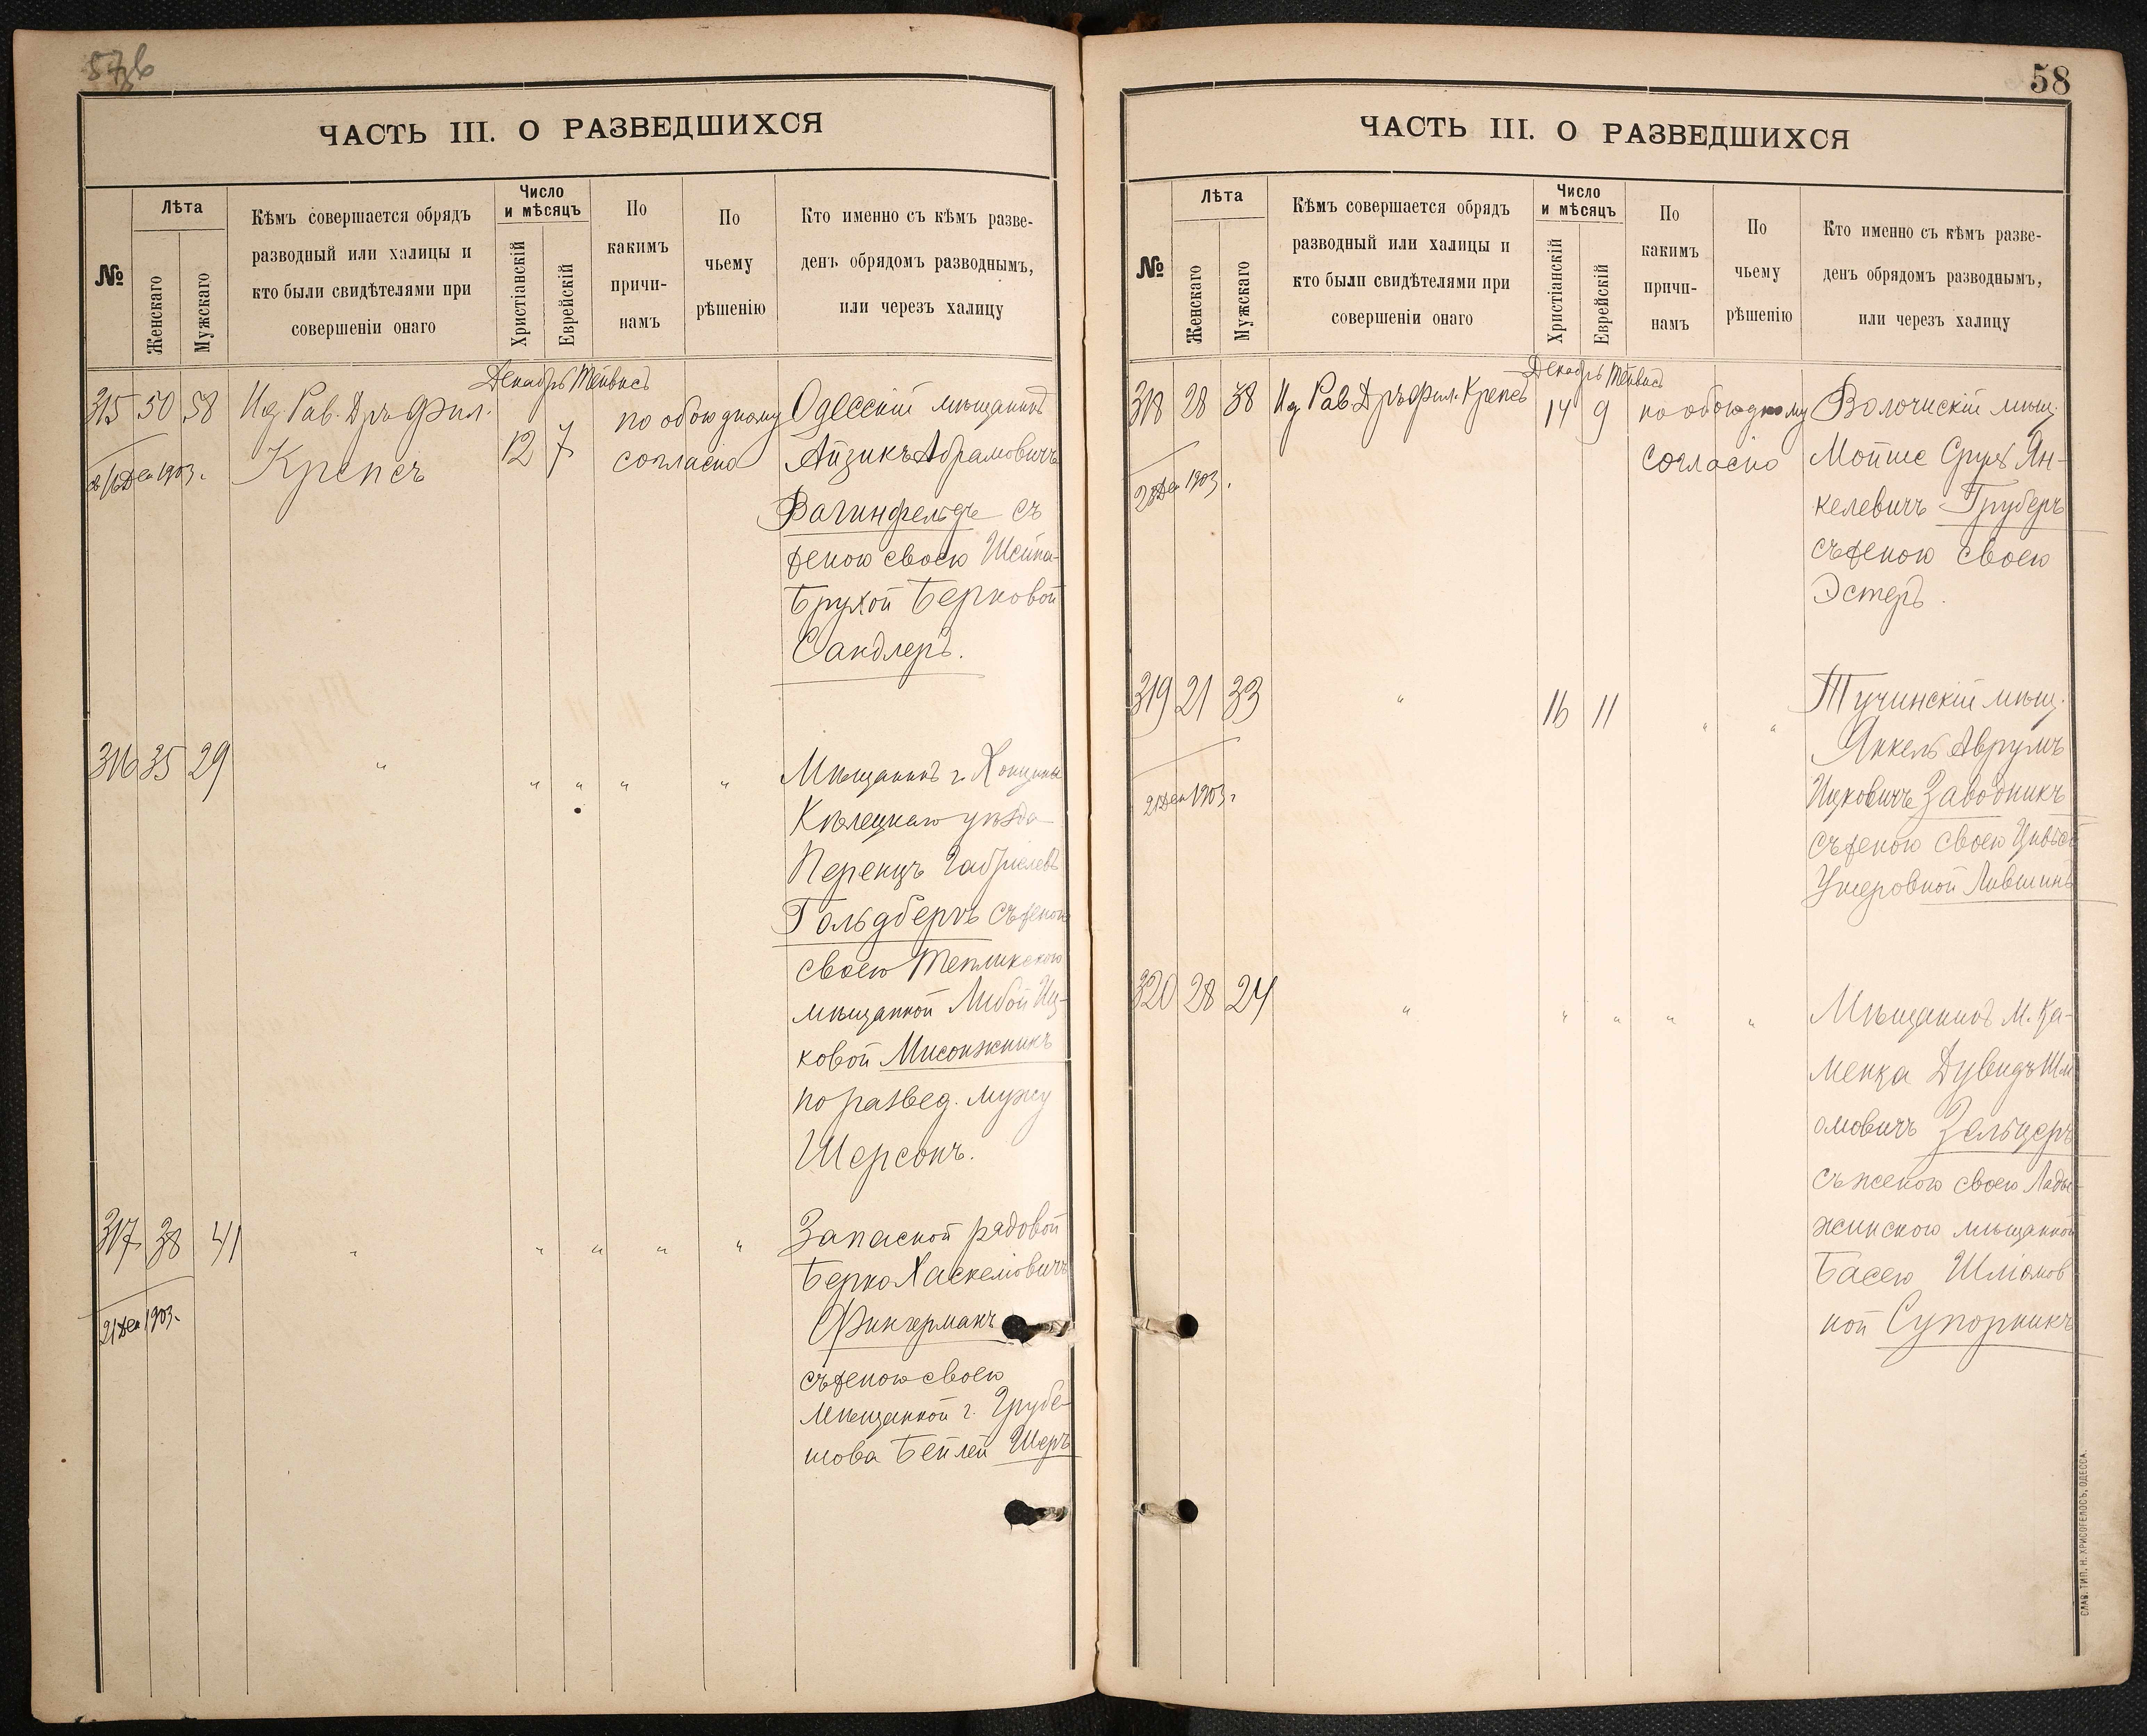 ЧАСТЬ III. О РАЗВЕДШИХСЯ
№
Лѣта
Женскаго
Мужскаго
Кѣмъ совершается обрядъ
разводный или халицы и
кто были свидѣтелями при
совершеніи онаго
Число
и мѣсяцъ
Христіанскій
Еврейскій
По
какимъ
причи-
намъ
По
чьему
рѣшенію
Кто именно съ кѣмъ разве-
денъ обрядомъ разводнымъ,
или черезъ халицу
Декабрь Тейвисъ
315 50 58 Ид Рав. Дръ Фил.
Крепсъ
12 7
по обоюдному
согласію
16 Дек 1903.
Одесскій мѣщанинъ
Айзикъ Абрамовичъ
Вагинфельдъ съ
женою своею Шейна-
Брухой Берковой
Сандлеръ.
316 35 29 " " " " "
Мѣщанинъ г.
Кѣлецкаго уѣзда
Перецъ Габріелевъ
Гольдбергъ съ женою
своею Тепликскою
мѣщанкой Либой Иц-
ковой Мисонжникъ
по развед. мужу
Шерсонъ.
317 38 41 " " " " "
21 Дек 1903.
Запасной рядовой
Берко Хаскелевичъ
Фингерманъ
съ женою своею
мѣщанкой г. Грубе-
шова Бейлей Шеръ
58
ЧАСТЬ III. О РАЗВЕДШИХСЯ
№
Лѣта
Женскаго
Мужскаго
Кѣмъ совершается обрядъ
разводный или халицы и
кто были свидѣтелями при
совершеніи онаго
Число
и мѣсяцъ
Христіанскій
Еврейскій
По
какимъ
причи-
намъ
По
чьему
рѣшенію
Кто именно съ кѣмъ разве-
денъ обрядомъ разводнымъ,
или черезъ халицу
Декабрь Тейвисъ
318 28 38 Ид Рав Дръ Фил. Крепсъ 14 9 по обоюдному
согласію
Дек 1903.
Волочискій мѣщ.
Мойше Сруль Ян-
келевичъ Груберъ
съ женою своею
Эстеръ.
319 21 33 " 16 11 " "
21 Дек 1903 г
Тучинскій мѣщ.
Янкель Аврумъ
Ицковичъ Заводникъ
съ женою своею
Ушеровной Лившицъ
320 28 24 " " " " "
Мѣщанинъ м. Ка-
менка Дувидъ Шл
омовичъ Зельцеръ
съ женою своею Лады-
жинскою мѣщанкой
Басею Шліомов
ной Супорникъ
СЛАВ. ТИП. Н. ХРИСОГЕЛОСЪ, ОДЕССА.